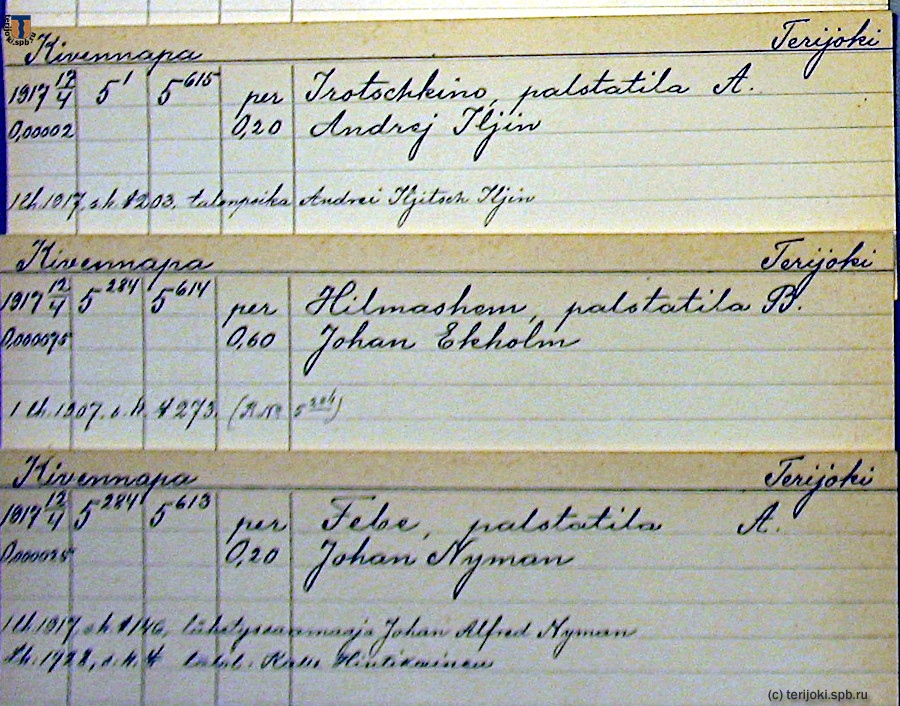 Kivennapa Terijoki
1917 12/4 5¹ 5⁶¹⁵ per Trotschkino, palstatila A.
0,00002 0,20 Andrej Iljin
1 lk. 1917, s.k. § 203. talonpoika Andrei Iljitsch Iljin
Kivennapa Terijoki
1917 12/4 5²⁸⁴ 5⁶¹⁴ per Hilmashem, palstatila B.
0,000075 0,60 Johan Ekholm
1 lk. 1907, s.k. § 273. (R.Nº
Kivennapa Terijoki
1917 12/4 5²⁸⁴ 5⁶¹³ per Febe, palstatila A.
0,000025 0,20 Johan Nyman
1 lk. 1917, s.k. § 146, lähetyssaarnaaja Johan Alfred Nyman
1928, s.k. §
(c) terijoki.spb.ru